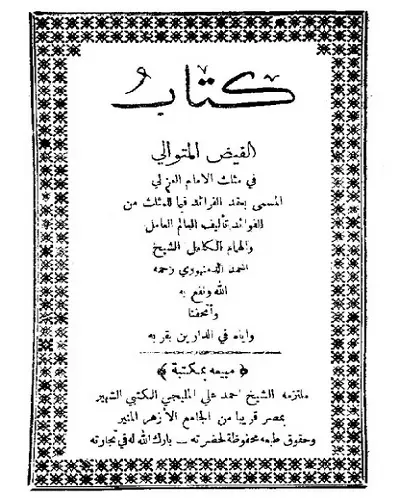 كتاب
الفيض المتوالي
في مثلث الامام الغزلي
المسمى بعقد الفرائد فيما للمثلث من
الفوائد تأليف العالم العامل
والهمام الكامل الشيخ
احمد الدمنهوري رحمه
الله ونفع به
وأتحفنا
واياه في الدارين بقربه
﴿ مبيعه بمكتبة ﴾
ملتزمه الشيخ احمد علي المليجي الكتبي الشهير
بمصر قريبا من الجامع الأزهر المنير
وحقوق طبعه محفوظة لحضرته — بارك الله له في تجارته